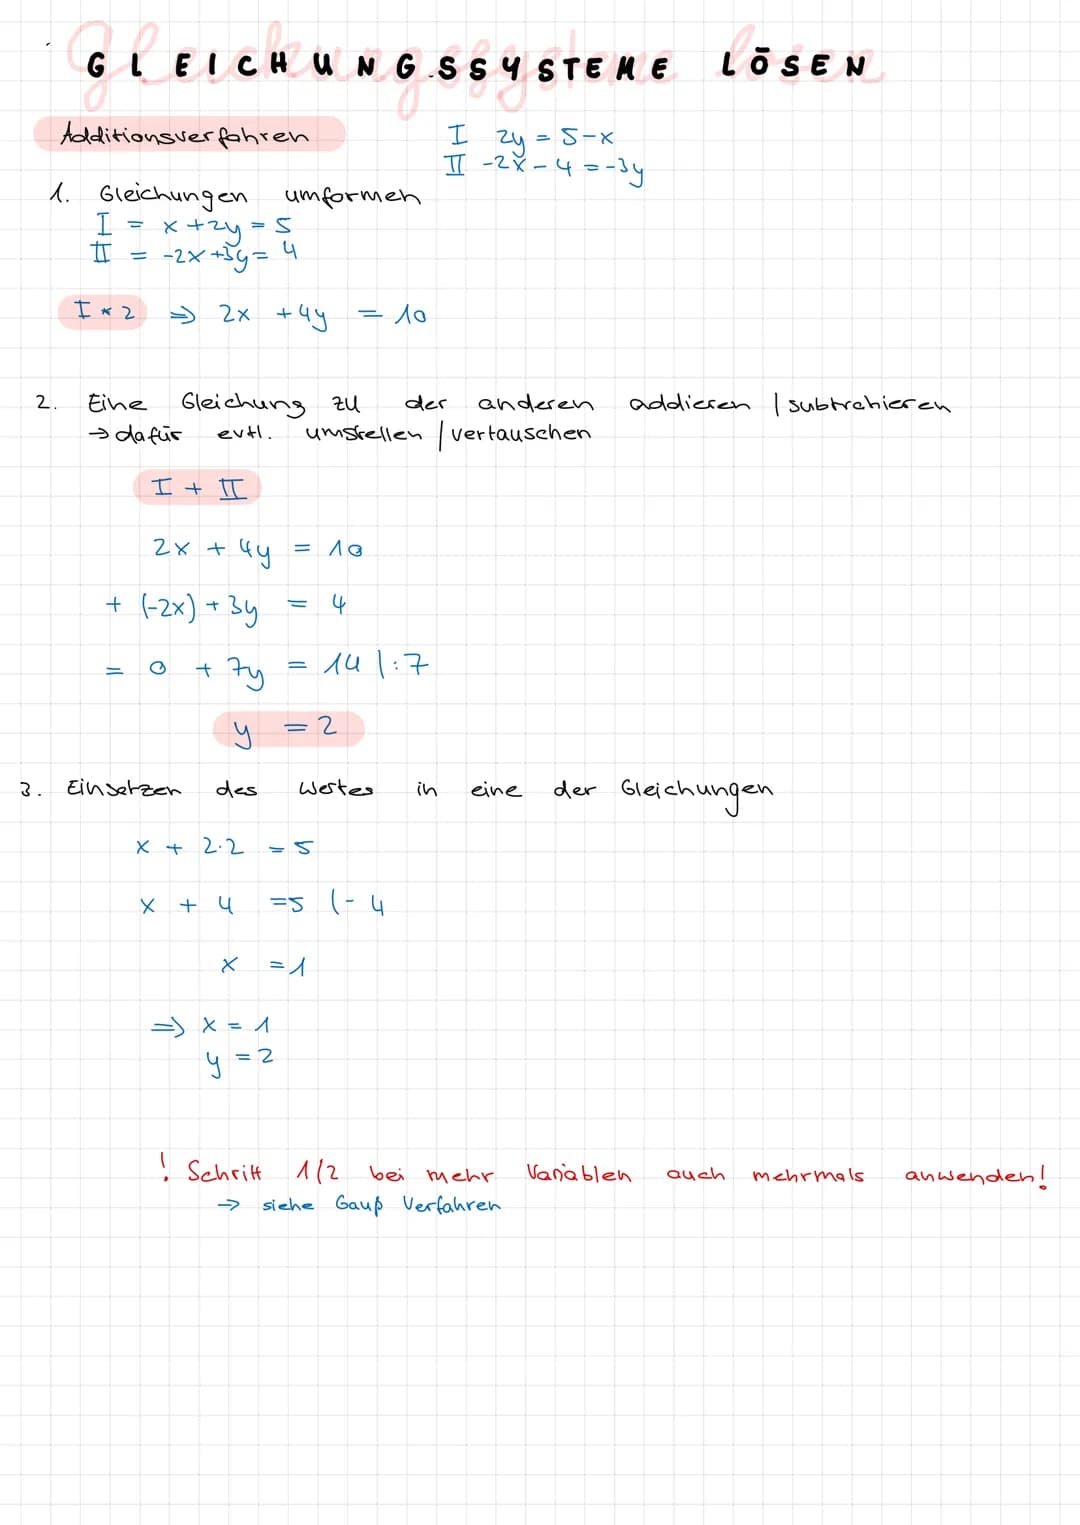 Gleichungssysteme lösen
GLEICHUNGSSYSTEME LÖSEN
Additionsverfahren
I 2y = 5-x
II -2x - 4 = -3y
1. Gleichungen umformen
I = x + 2y = 5
II = -2x + 3y = 4
I * 2 ⇒ 2x + 4y = 10
2. Eine Gleichung zu der anderen addieren / subtrahieren
→ dafür evtl. umstellen / vertauschen
I + II
2x + 4y = 10
+ (-2x) + 3y = 4
= 0 + 7y = 14 |:7
y = 2
3. Einsetzen des Wertes in eine der Gleichungen
x + 2·2 = 5
x + 4 = 5 |- 4
x = 1
⇒ x = 1
y = 2
! Schritt 1/2 bei mehr Variablen auch mehrmals anwenden!
→ siehe Gauß Verfahren